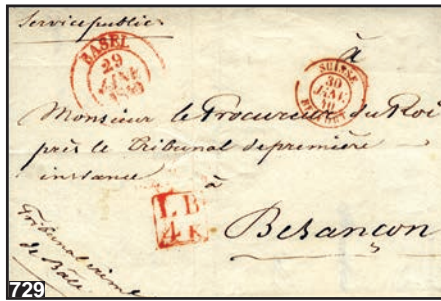 Service public
à
BASEL
29
JANV
1840
SUISSE
30
JANV
40
Monsieur le Procureur du Roi
près le Tribunal de première
instance
à
L B
4 K
Besançon
Tribunal crim
de Bâle
729